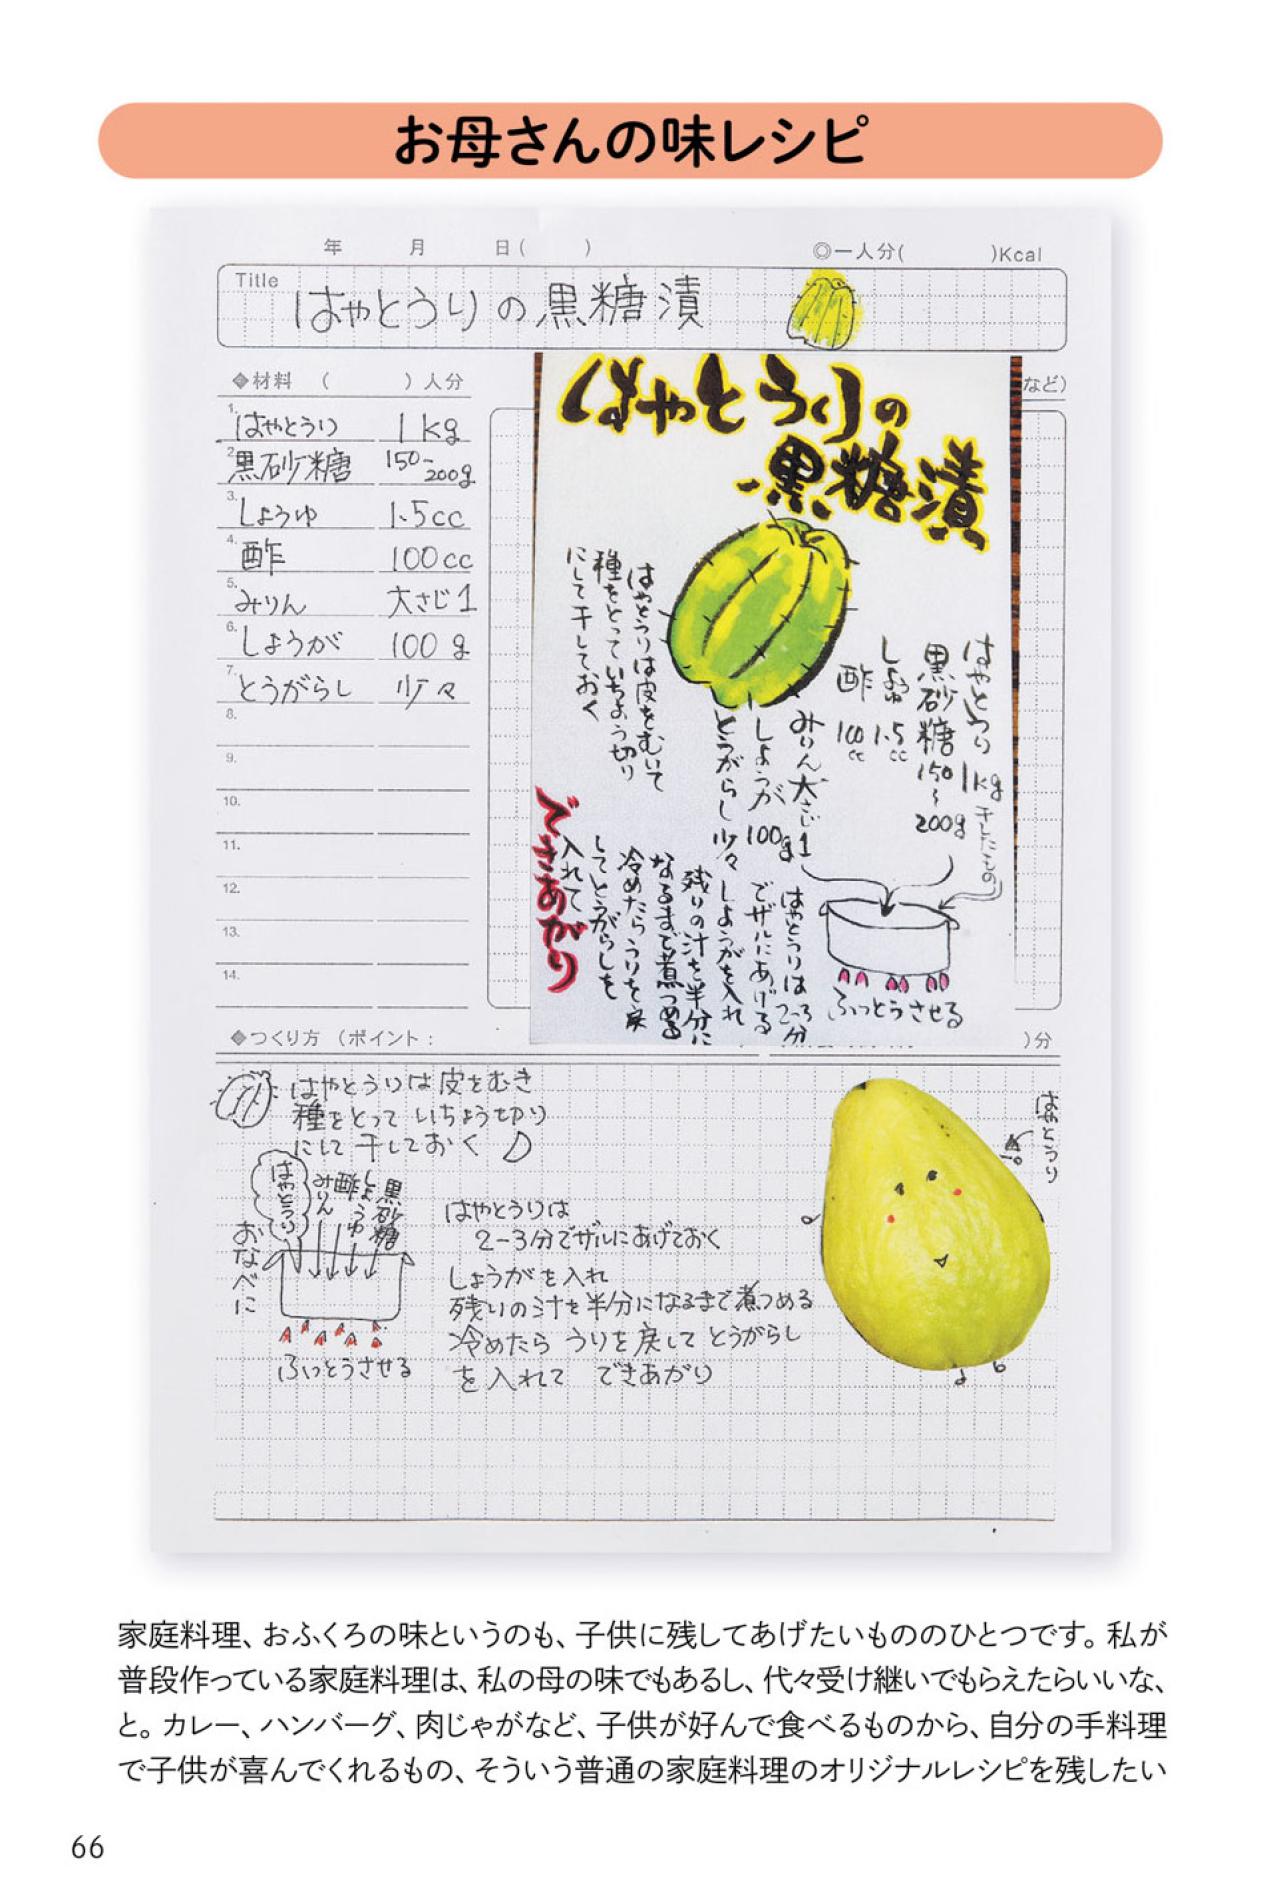 お母さんの味レシピ
年 月 日( )
◎一人分( )Kcal
Title
はやとうりの黒糖漬
◆材料 ( )人分
1. はやとうり 1kg
2. 黒砂糖 150-200g
3. しょうゆ 1.5cc
4. 酢 100cc
5. みりん 大さじ1
6. しょうが 100g
7. とうがらし 少々
8.
9.
10.
11.
12.
13.
14.
など)
はやとうりの
黒糖漬
はやとうり 1kg 干したもの
黒砂糖 150〜200g
しょうゆ 1.5cc
酢 100cc
みりん大さじ1
しょうが 100g
とうがらし少々
はやとうりは皮をむいて
種をとっていちょう切り
にして干しておく
ふっとうさせる
はやとうりは2-3分
でザルにあげる
しょうがを入れ
残りの汁を半分に
なるまで煮つめる
冷めたらうりを戻
してとうがらしを
入れて
できあがり
◆つくり方 (ポイント:
)分
はやとうりは皮をむき
種をとって いちょう切り
にして干しておく
おなべに
はやとうり
みりん
酢
しょうゆ
黒砂糖
ふっとうさせる
はやとうりは
2-3分でザルにあげておく
しょうがを入れ
残りの汁を半分になるまで煮つめる
冷めたら うりを戻して とうがらし
を入れて できあがり
はやとうり
家庭料理、おふくろの味というのも、子供に残してあげたいもののひとつです。私が
普段作っている家庭料理は、私の母の味でもあるし、代々受け継いでもらえたらいいな、
と。カレー、ハンバーグ、肉じゃがなど、子供が好んで食べるものから、自分の手料理
で子供が喜んでくれるもの、そういう普通の家庭料理のオリジナルレシピを残したい
66